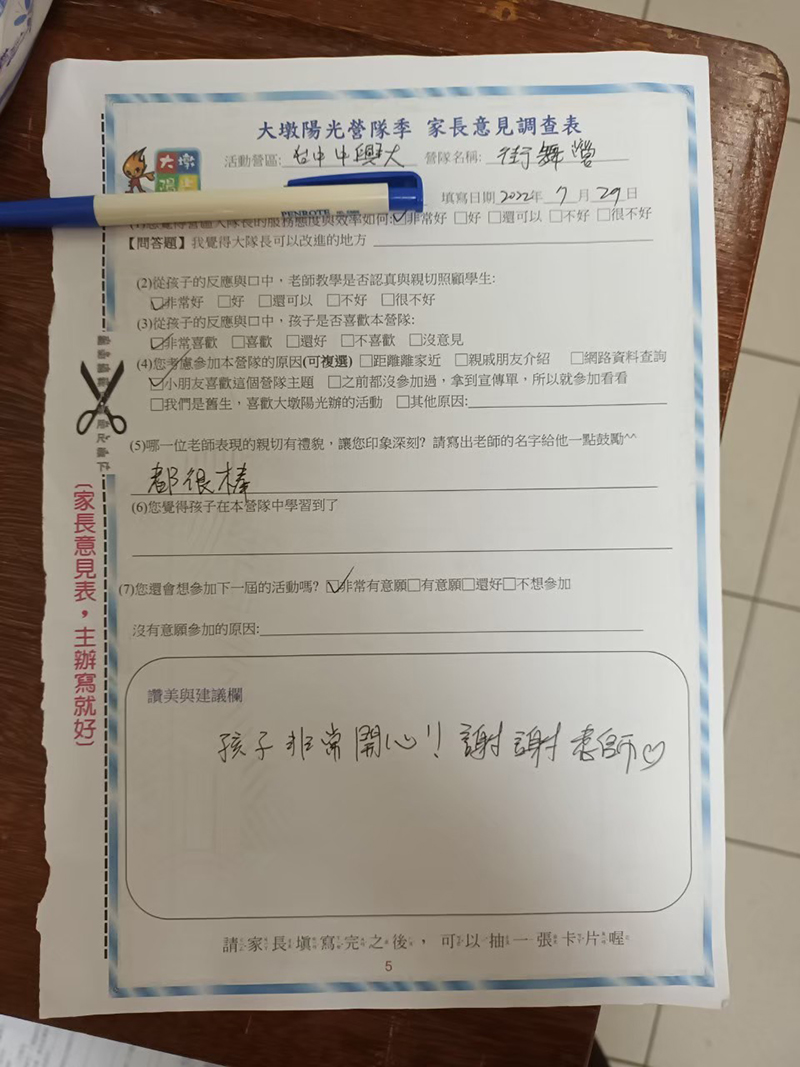 大墩陽光營隊季 家長意見調查表
大墩
活動營區: 台中中興大 營隊名稱: 街舞營
填寫日期 2022年 7月 29日
PENROTE
服務態度與效率如何: ☑非常好 □好 □還可以 □不好 □很不好
【問答題】我覺得大隊長可以改進的地方
(2)從孩子的反應與口中，老師教學是否認真與親切照顧學生:
☑非常好 □好 □還可以 □不好 □很不好
(3)從孩子的反應與口中，孩子是否喜歡本營隊:
☑非常喜歡 □喜歡 □還好 □不喜歡 □沒意見
(4)您考慮參加本營隊的原因(可複選) □距離離家近 □親戚朋友介紹 □網路資料查詢
☑小朋友喜歡這個營隊主題 □之前都沒參加過，拿到宣傳單，所以就參加看看
□我們是舊生，喜歡大墩陽光辦的活動 □其他原因:
(5)哪一位老師表現的親切有禮貌，讓您印象深刻? 請寫出老師的名字給他一點鼓勵^^
都很棒
(6)您覺得孩子在本營隊中學習到了
(7)您還會想參加下一屆的活動嗎? ☑非常有意願□有意願□還好□不想參加
沒有意願參加的原因:
讚美與建議欄
孩子非常開心!! 謝謝老師♡
請家長填寫完之後，可以抽一張卡片喔
5
〔家長意見表，主辦寫就好〕